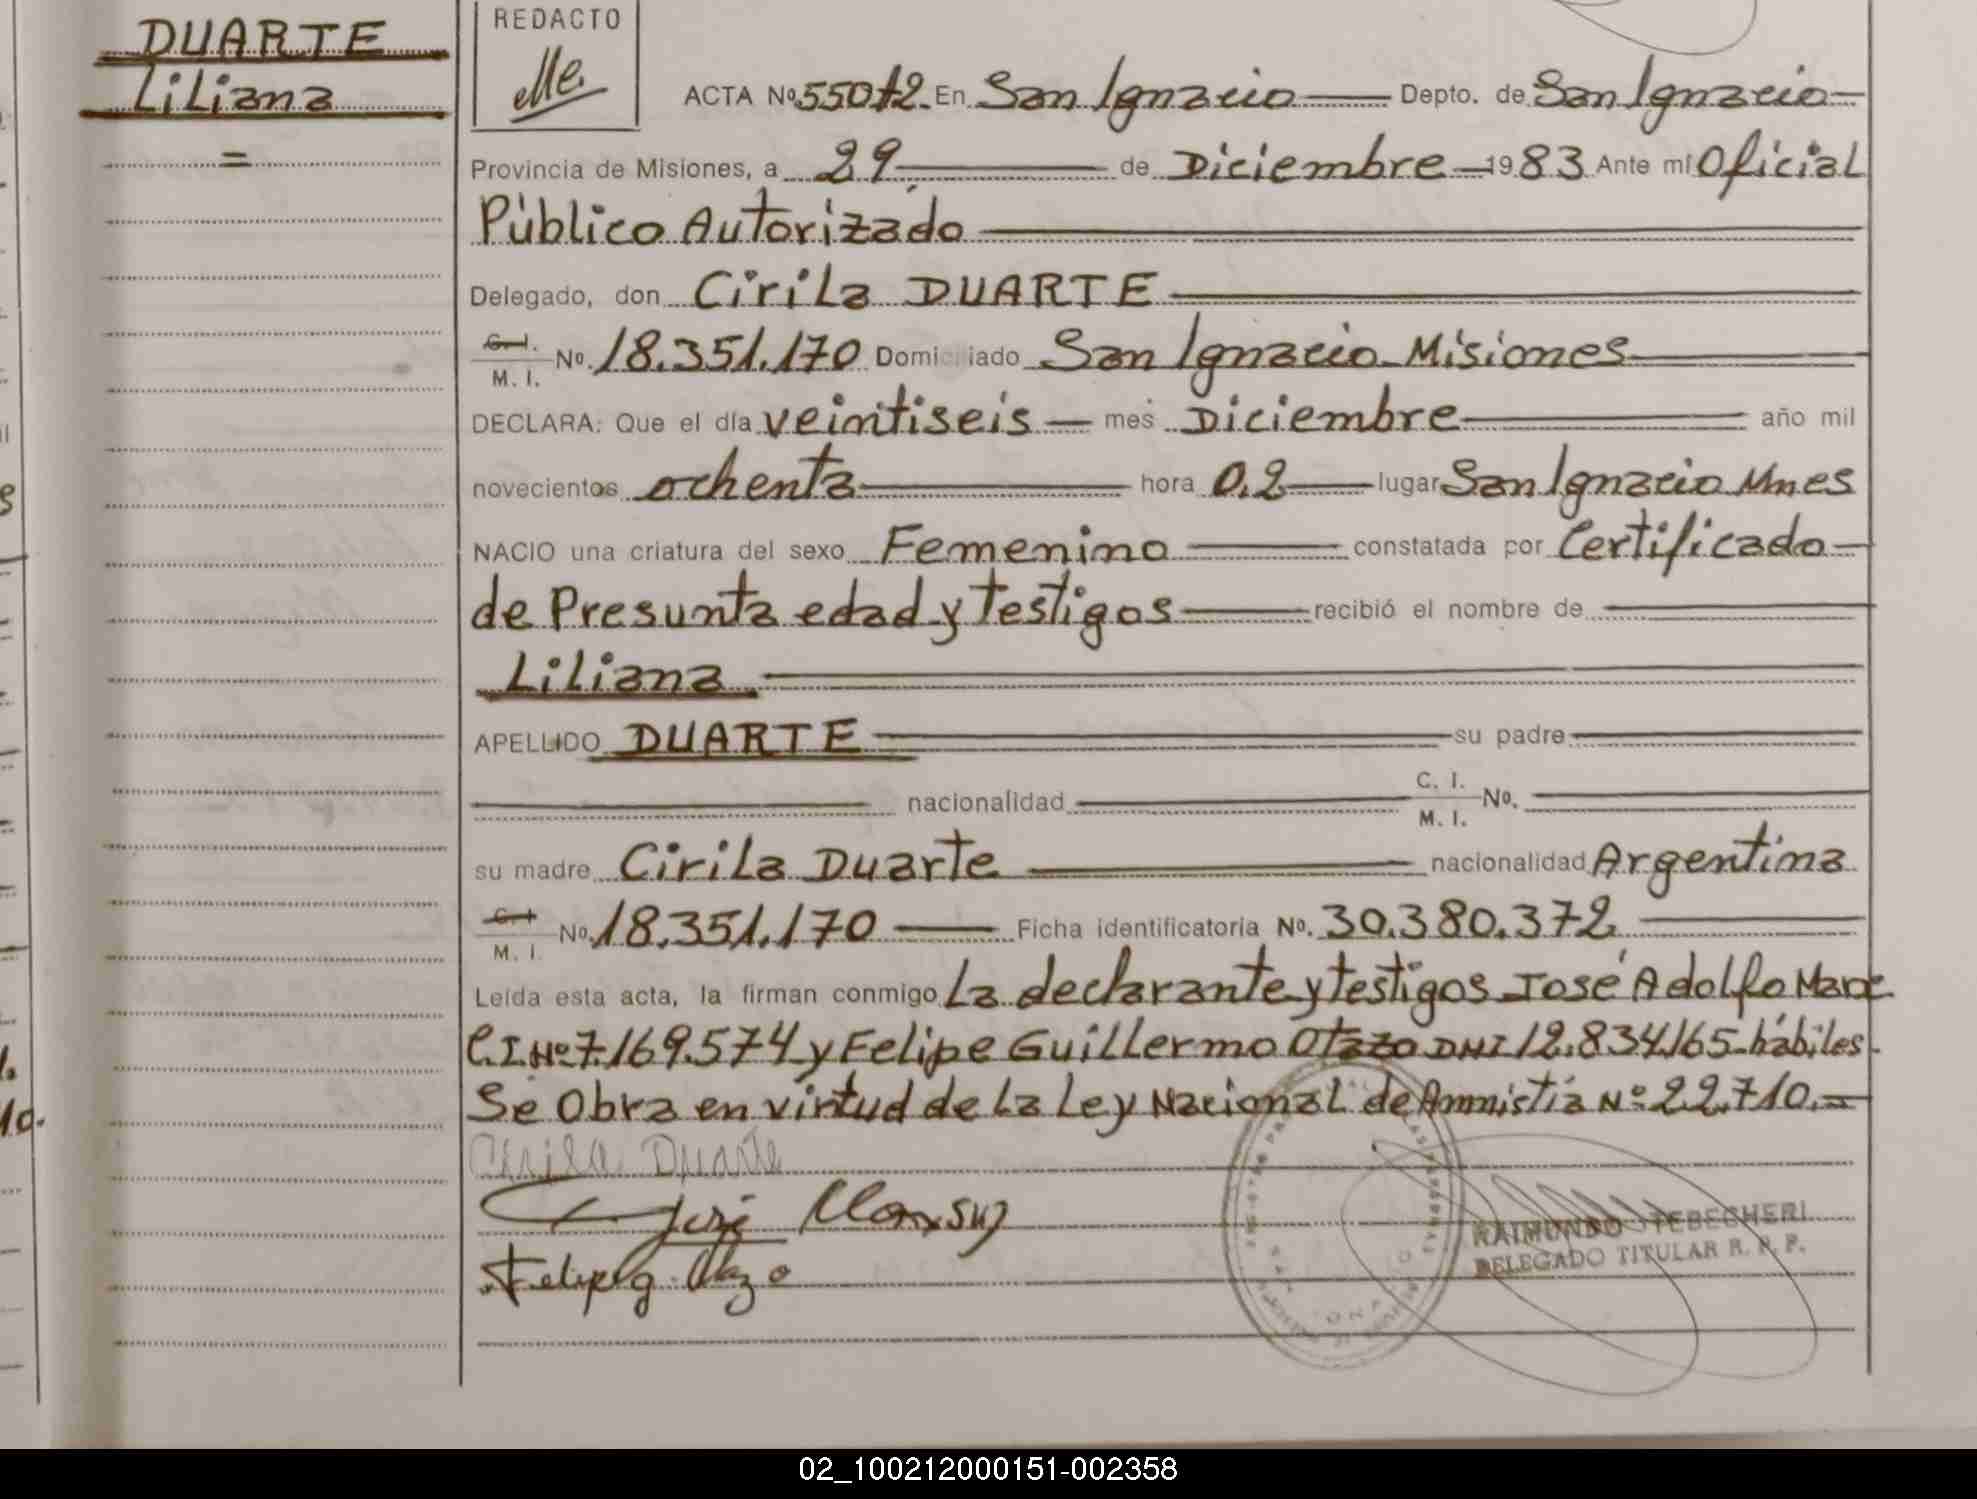 DUARTE
Liliana
=
REDACTO
ACTA Nº 550 T2. En San Ignacio Depto. de San Ignacio
Provincia de Misiones, a 29 de Diciembre 1983 Ante mí Oficial
Público Autorizado
Delegado, don Cirila DUARTE
C. I. M. I. Nº. 18.351.170 Domiciliado San Ignacio Misiones
DECLARA: Que el día veintiseis mes Diciembre año mil
novecientos ochenta hora 0,2 lugar San Ignacio Mnes
NACIO una criatura del sexo Femenino constatada por Certificado
de Presunta edad y testigos recibió el nombre de
Liliana
APELLIDO DUARTE su padre
nacionalidad C. I. M. I. Nº.
su madre Cirila Duarte nacionalidad Argentina
C. I. M. I. Nº. 18.351.170 Ficha identificatoria Nº. 30.380.372
Leída esta acta, la firman conmigo La declarante y testigos José Adolfo
C.I.Nº 7.169.574 y Felipe Guillermo Otazo DNI 12.834.165 hábiles.
Se Obra en virtud de La Ley Nacional de Amnistía Nº 22.710.=
Cirila Duarte
José
Felipe g.
RAIMUNDO TEBECHERI
DELEGADO TITULAR R. P. P.
02_100212000151-002358